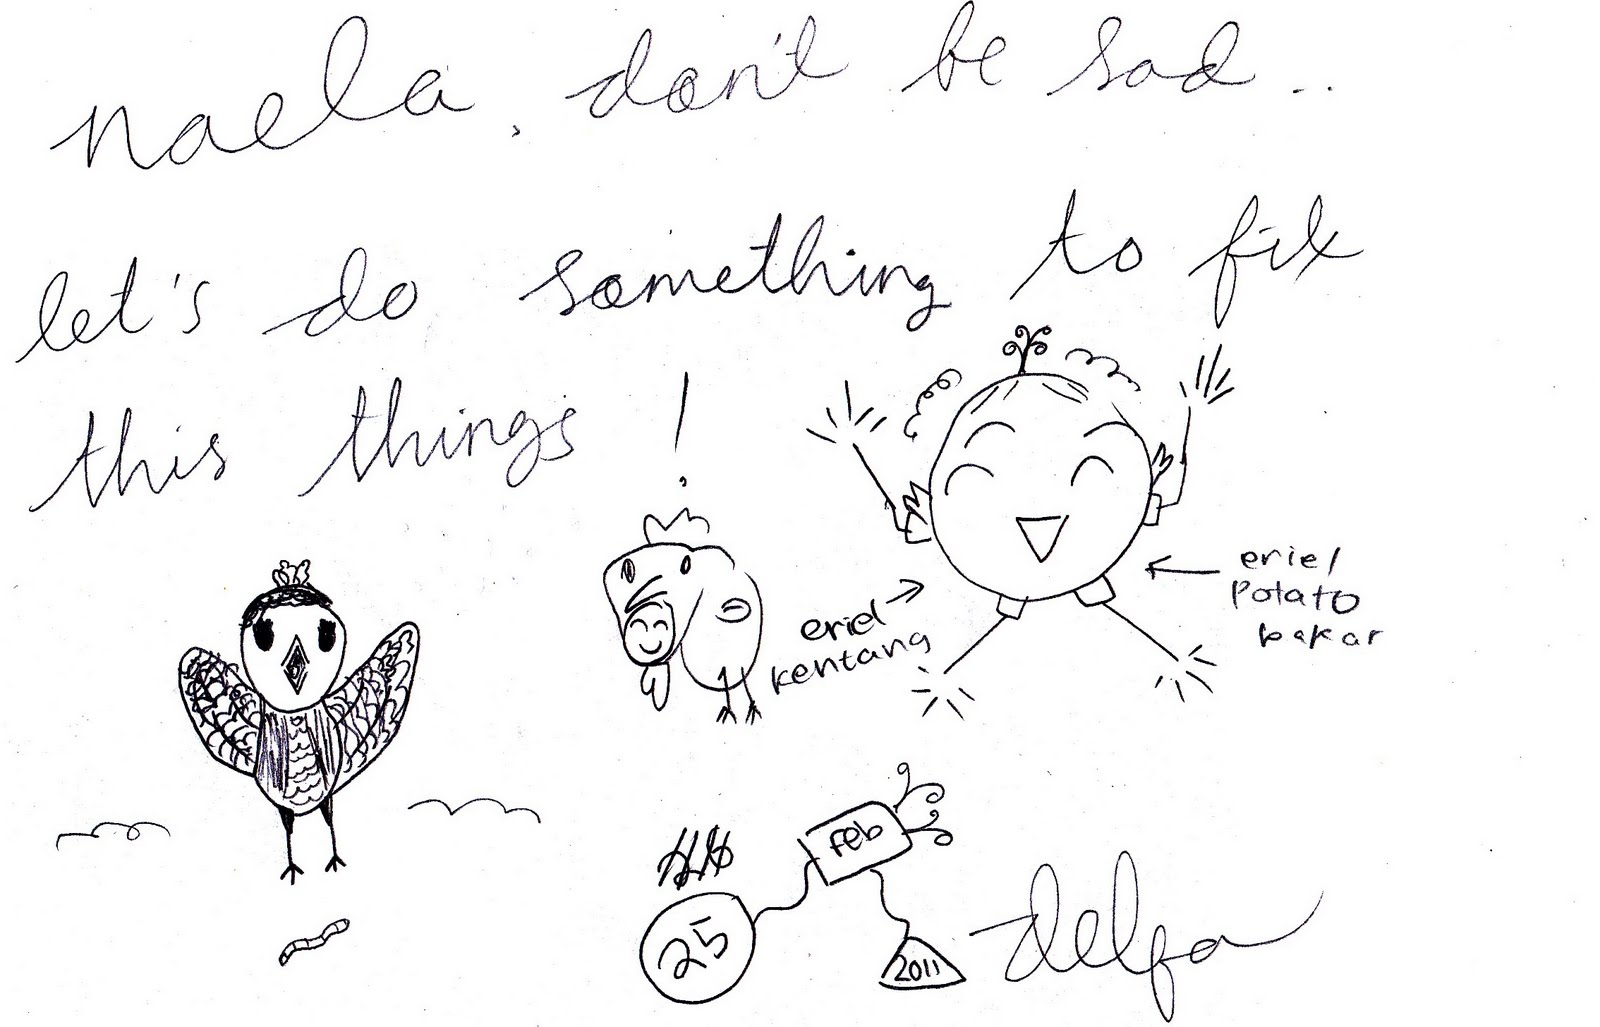 naela, don't be sad..
let's do something to fix
this things!
eriel
kentang
eriel
potato
bakar
feb
25
2011
delfa